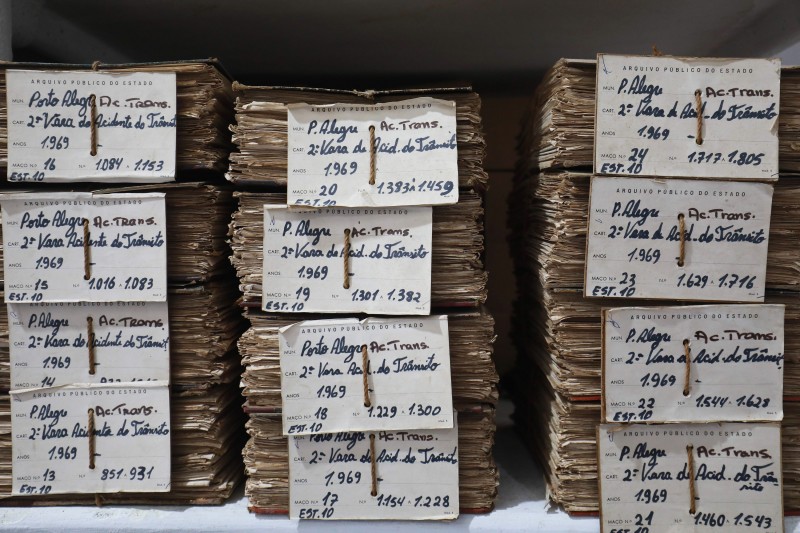 ARQUIVO PÚBLICO DO ESTADO
MUN. Porto Alegre Ac. Trans.
CART. 2ª Vara de Acidente do Trânsito
ANOS 1.969
MAÇO N.º 16 N.º 1.084 - 1.153
EST. 10
Porto Alegre Ac. Trans.
2ª Vara Acidente do Trânsito
ANOS 1.969
MAÇO N.º 15 N.º 1.016 - 1.083
EST. 10
P. Alegre Ac. Trans.
2ª Vara de Acidente do Trânsit
1.969
14
MUN. P. Alegre Ac. Trans.
CART. 2ª Vara de Acidente do Trânsito
ANOS 1.969
MAÇO N.º 13 N.º 851 - 931
EST. 10
ARQUIVO PÚBLICO DO ESTADO
MUN. P. Alegre Ac. Trans.
CART. 2ª Vara de Acid. do Trânsito
ANOS 1.969
MAÇO N.º 20 N.º 1.383 à 1.459
EST. 10
MUN. P. Alegre Ac. Trans.
CART. 2ª Vara de Acid. do Trânsito
ANOS 1.969
MAÇO N.º 19 N.º 1.301 - 1.382
EST. 10
ARQUIVO PÚBLICO DO ESTADO
MUN. Porto Alegre Ac. Trans.
CART. 2ª Vara de Acid. do Trânsito
ANOS 1.969
MAÇO N.º 18 N.º 1.229 - 1.300
EST. 10
MUN. P. Alegre Ac. Trans.
CART. 2ª Vara de Acid. do Trânsito
ANOS 1.969
MAÇO N.º 17 N.º 1.154 - 1.228
EST. 10
ARQUIVO PÚBLICO DO ESTADO
MUN. P. Alegre Ac. Trans.
CART. 2ª Vara de Acid. do Trânsito
ANOS 1.969
MAÇO N.º 24 N.º 1.717 - 1.805
EST. 10
MUN. P. Alegre Ac. Trans.
CART. 2ª Vara de Acid. do Trânsito
ANOS 1.969
MAÇO N.º 23 N.º 1.629 - 1.716
EST. 10
ARQUIVO PÚBLICO DO ESTADO
MUN. P. Alegre Ac. Trans.
CART. 2ª Vara de Acid. do Trânsit
ANOS 1.969
MAÇO N.º 22 N.º 1.544 - 1.628
EST. 10
ARQUIVO PÚBLICO DO ESTADO
MUN. P. Alegre Ac. Trans.
CART. 2ª Vara de Acid. do Trânsito
ANOS 1969
MAÇO N.º 21 N.º 1.460 - 1.543
EST. 10